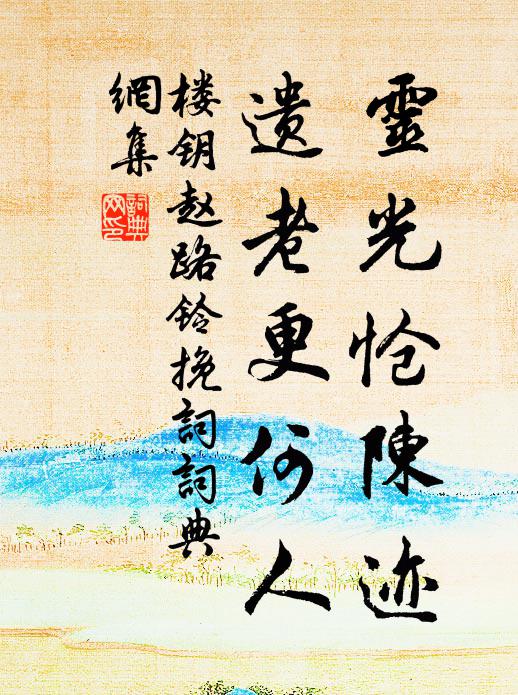 靈光怆陳迹
遗老更何人
楼钥赵路铃挽詞詞典
網集
詞典
网印